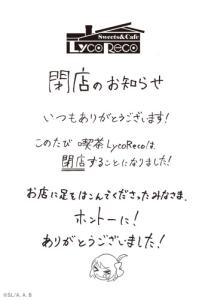 Sweets&Cafe
LycoReco
閉店のお知らせ
いつもありがとうございます!
このたび 喫茶LycoRecoは、
閉店することになりました!
お店に足をはこんでくださったみなさま、
ホントーに!
ありがとうございました!
©SL/A. A. B